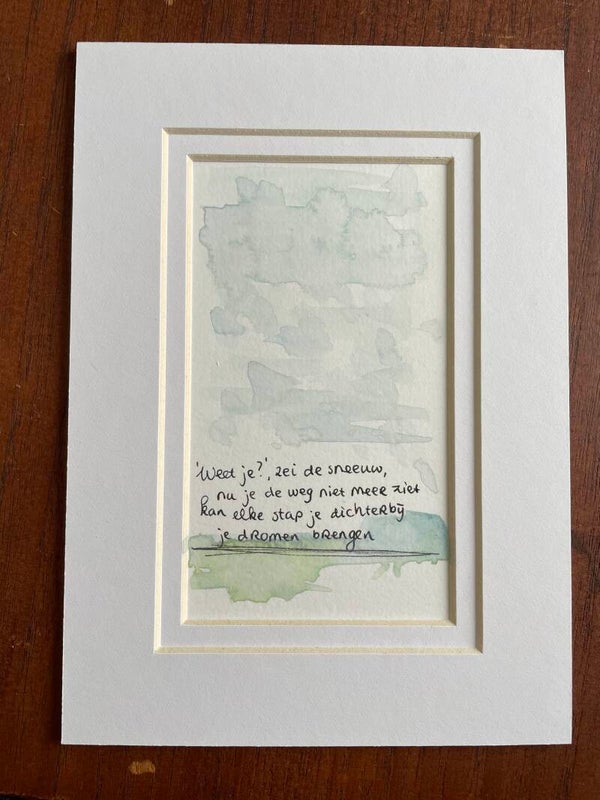 'Weet je?', zei de sneeuw,
nu je de weg niet meer ziet
kan elke stap je dichterbij
je dromen brengen